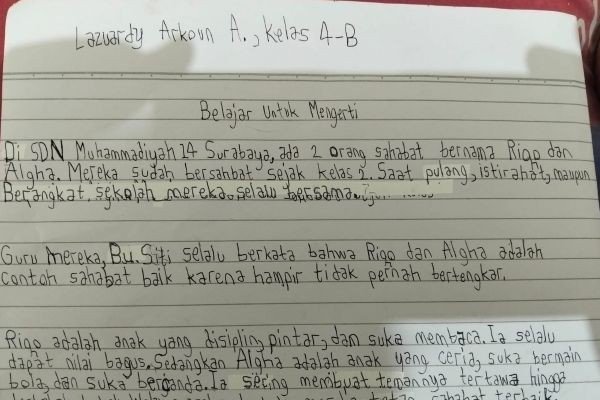 Lazuardy Arkoun A., Kelas 4-B
Belajar Untuk Mengerti
Di SDN Muhammadiyah 14 Surabaya, ada 2 orang sahabat bernama Rigo dan
Algha. Mereka sudah bersahbat sejak kelas 2. Saat pulang, istirahat, maupun
Berangkat sekolah mereka selalu bersama.
Guru mereka, Bu. Siti selalu berkata bahwa Rigo dan Algha adalah
contoh sahabat baik karena hampir tidak pernah bertengkar.
Rigo adalah anak yang disiplin, pintar, dan suka membaca. Ia selalu
dapat nilai bagus. Sedangkan Algha adalah anak yang ceria, suka bermain
bola, dan suka berčanda. Ia sering membuat temannya tertawa hingga
sahabat terbaik.